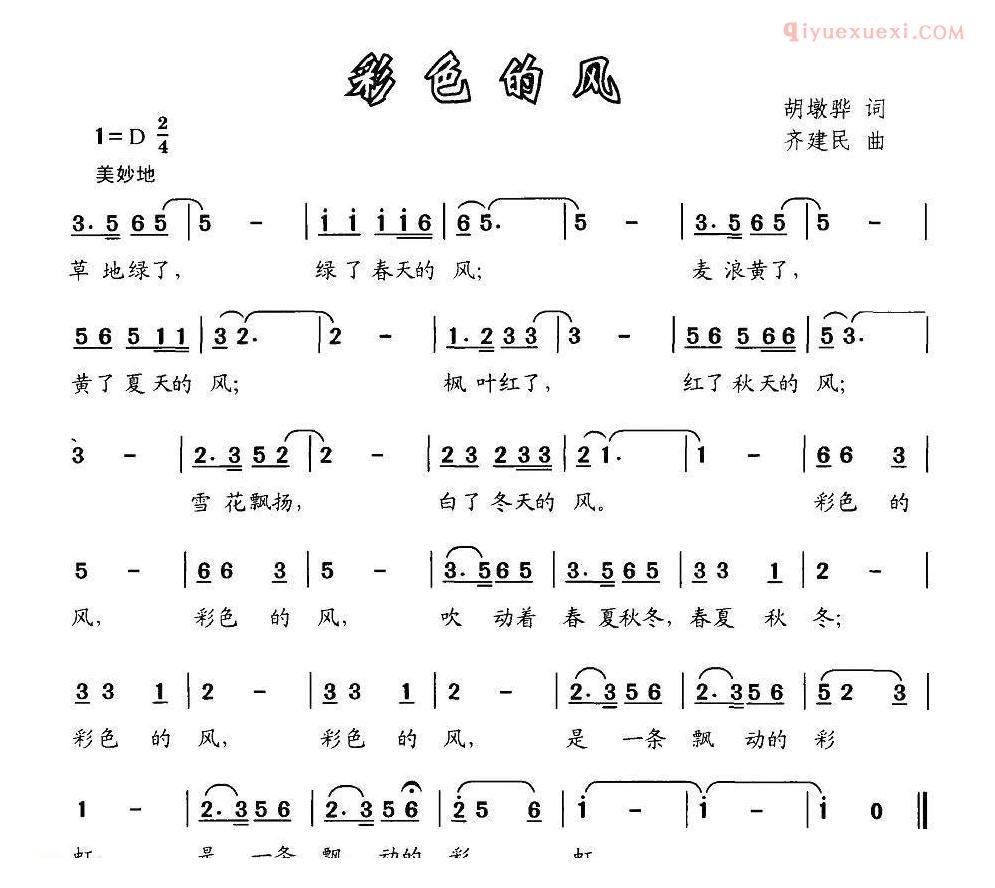 qiyuexuexi.com
彩色的风
胡墩骅 词
1=D 2/4
齐建民 曲
美妙地
3. 5 6 5 | 5 - | i i i i 6 | 6 5. | 5 - | 3. 5 6 5 | 5 - |
草地绿了, 绿了春天的 风; 麦浪黄了,
5 6 5 1 1 | 3 2. | 2 - | 1. 2 3 3 | 3 - | 5 6 5 6 6 | 5 3. |
黄了夏天的 风; 枫叶红了, 红了秋天的 风;
3 - | 2. 3 5 2 | 2 - | 2 3 2 3 3 | 2 1. | 1 - | 6 6 3 |
雪花飘扬, 白了冬天的 风。 彩色 的
5 - | 6 6 3 | 5 - | 3. 5 6 5 | 3. 5 6 5 | 3 3 1 | 2 - |
风, 彩色 的 风, 吹 动着 春夏秋冬, 春夏 秋 冬;
3 3 1 | 2 - | 3 3 1 | 2 - | 2. 3 5 6 | 2. 3 5 6 | 5 2 3 |
彩色 的 风, 彩色 的 风, 是 一条 飘 动的 彩
1 - | 2. 3 5 6 | 2. 3 5 6 | 2 5 6 | i - | i - | i 0 ‖
虹, 是 一条 飘 动的 彩 虹